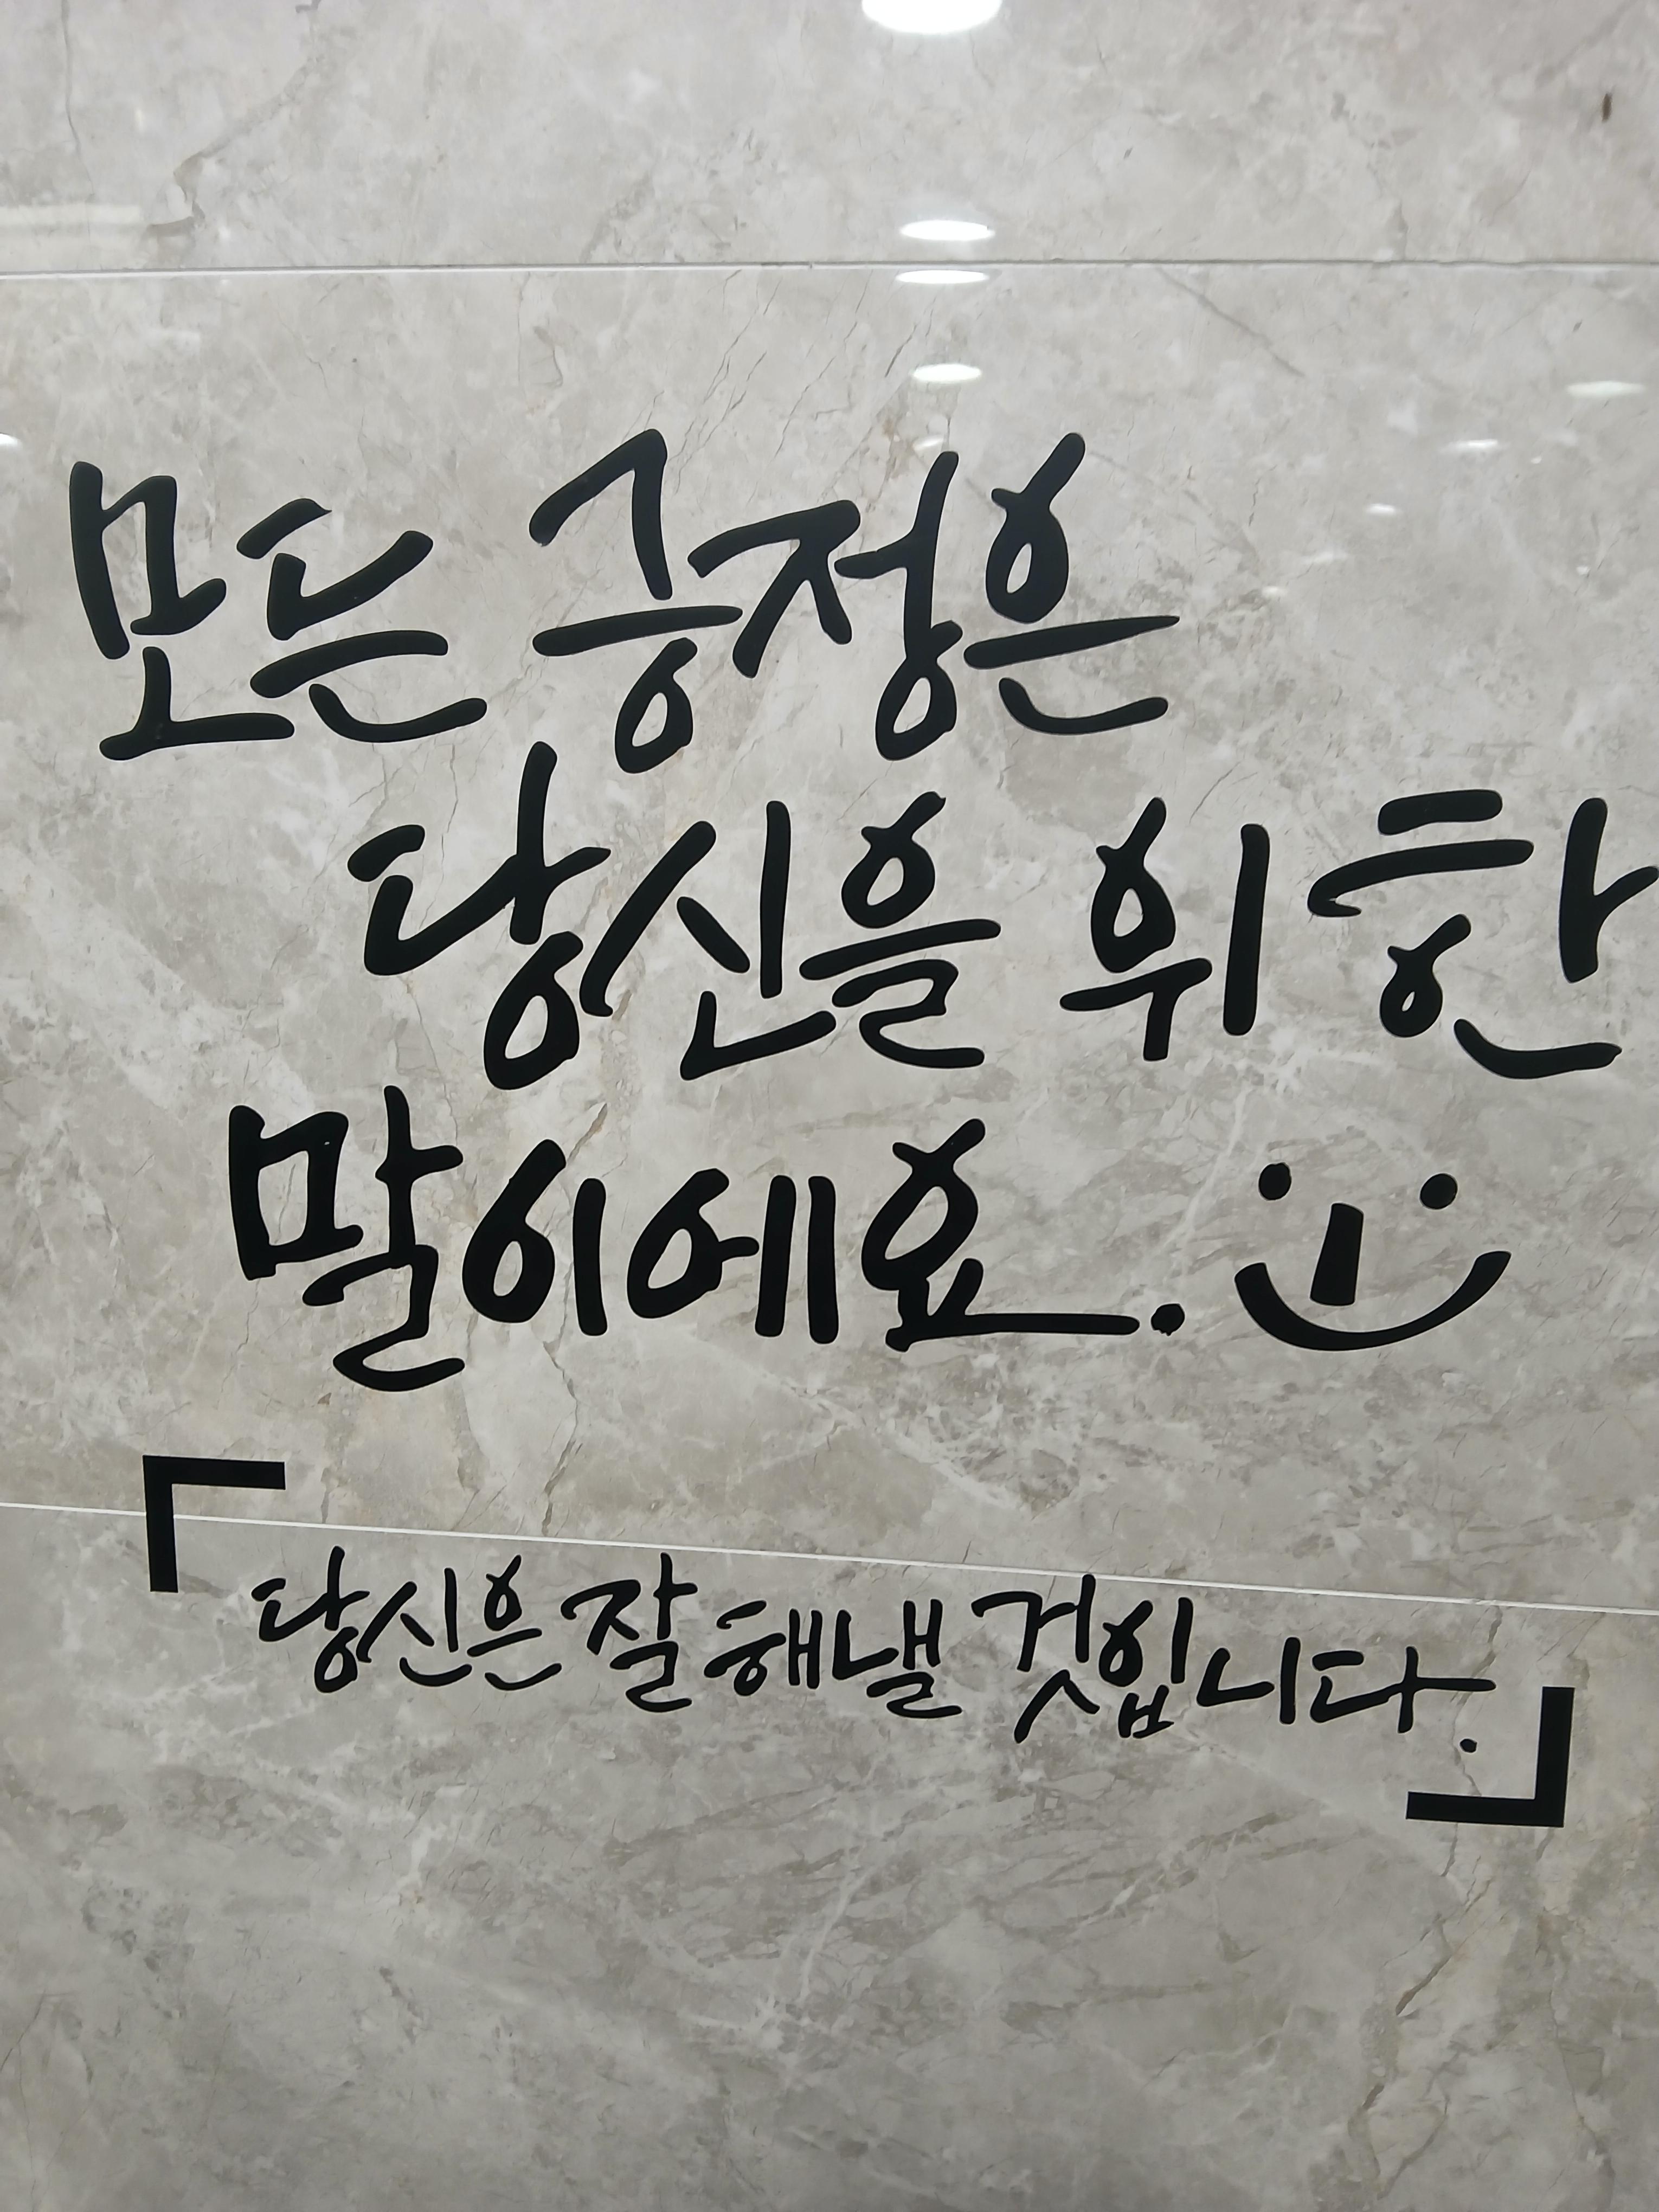 모든 긍정은
당신을 위한
말이에요.
「당신은 잘 해낼 것입니다.」